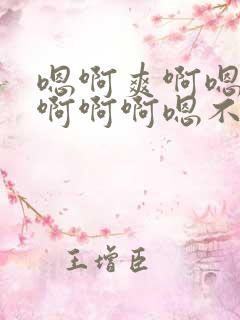 嗯啊爽啊嗯
啊啊啊嗯不
王增臣